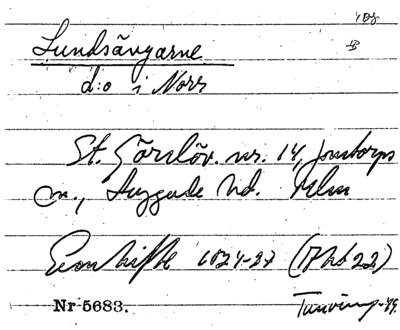 108
B
Lundsängarne
d:o i Norr
St. Görslöv. nr. 14, Jonstorps
sn., Luggude hd. Mlm
Enskifte 1824-27 (Akt 22)
Nr 5683.
Tunving-49.